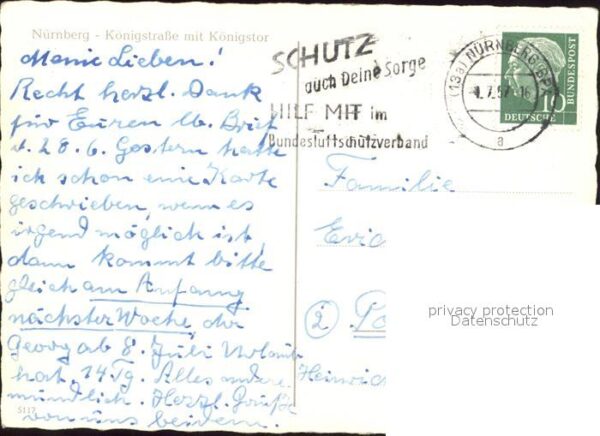 Nürnberg - Königstraße mit Königstor
Meine Lieben!
Recht herzl. Dank
für Euren lb. Brief
v. 28.6. Gestern hatte
ich schon eine Karte
geschrieben, wenn es
irgend möglich ist,
dann kommt bitte
gleich am Anfang
nächster Woche, da
Georg ab 8. Juli Urlaub
hat, 14 Tg. Alles andere
mündlich. Herzl. Grüße
von uns beiden.
5117
SCHUTZ
auch Deine Sorge
HILF MIT im
Bundesluftschutzverband
(13a) NÜRNBERG
.7.57.-16
a
10
DEUTSCHE
BUNDESPOST
Familie
Heinrich
privacy protection
Datenschutz